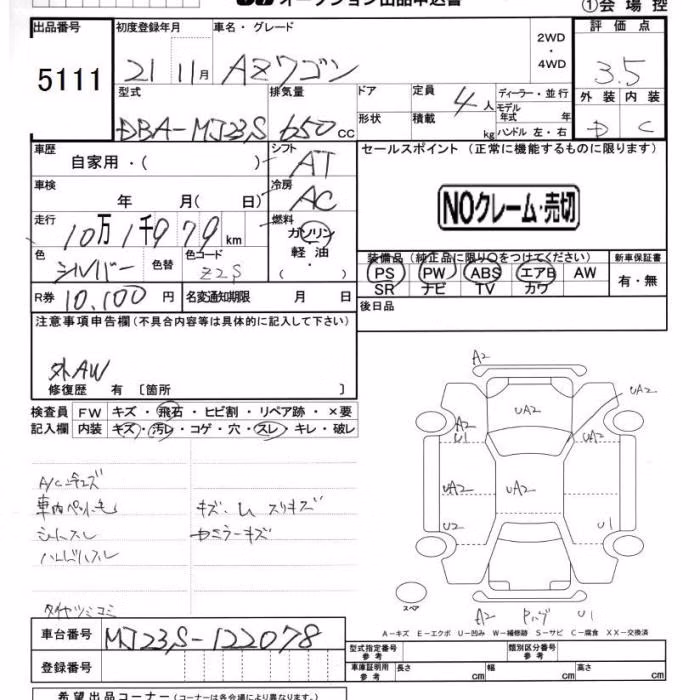 オークション出品申込書
①会場控
出品番号 初度登録年月 車名・グレード 2WD・4WD 評価点
5111 21 11月 AZワゴン 3.5
型式 排気量 ドア 定員 4人 ディーラー・並行 外装 内装
DBA-MJ23S 650cc 形状 積載 kg モデル年式 年 ハンドル 左・右 D C
車歴 シフト セールスポイント (正常に機能するものに限ります)
自家用・( ) AT
車検 冷房
年 月( 日) AC NOクレーム・売切
走行 燃料
10万1千979km ガソリン
色 色替 色コード 軽油 装備品(純正品に限り○をつけてください) 新車保証書
シルバー Z2S ・( ) PS PW ABS エアB AW 有・無
R券 10,100円 名変通知期限 月 日 SR ナビ TV カワ
注意事項申告欄(不具合内容等は具体的に記入して下さい) 後日品
外AW
修復歴 有 [箇所 ]
検査員 FW キズ・飛石・ヒビ割・リペア跡・×要
記入欄 内装 キズ・汚レ・コゲ・穴・スレ・キレ・破レ
車内ペット毛
シートスレ
ハンドルスレ
キズ
スリキズ
ミラーキズ
A2
UA2
UA2
A2
U1
UA2
UA2
UA2
UA2
U2
U1
スペア
A2
U1
A-キズ E-エクボ U-凹み W-補修跡 S-サビ C-腐食 XX-交換済
車台番号 MJ23S-122078
登録番号
型式指定番号 参考 類別区分番号 参考
車庫証明用 参考 長さ cm 幅 cm 高さ cm
希望出品コーナー (コーナーは各会場により異なります。)